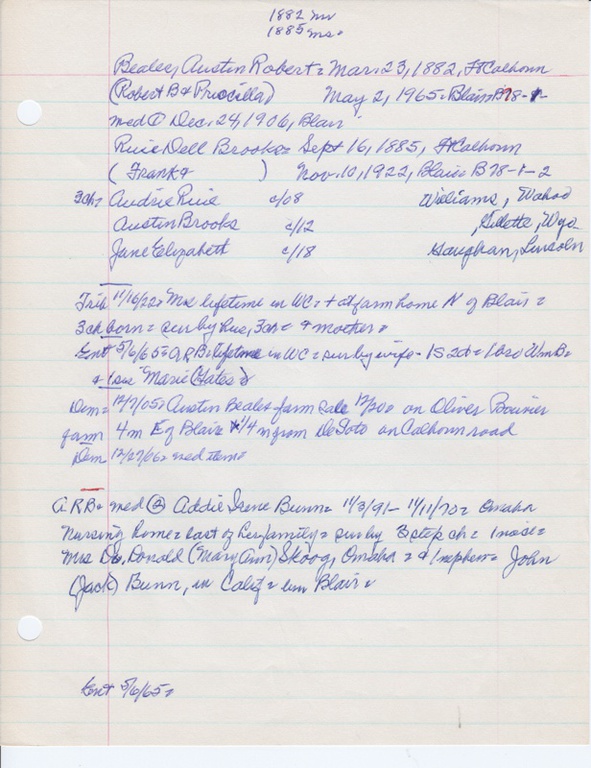 1882 mr
1885 ms.
Beales, Austin Robert = Mar. 23, 1882, Ft Calhoun
(Robert B & Priscilla) May 2, 1965 = Blair B78-1-
med ① Dec. 24, 1906, Blair
Rusie Dell Brooks = Sept 16, 1885, Ft Calhoun
(Frank & ) Nov. 10, 1922, Blair = B78-1-2
3ch = Audrie Rusie c/08 Williams, Wahoo
Austin Brooks c/12 Gillette, Wyo
Jane Elizabeth c/18 Gaughan, Lincoln
Trib 11/16/22 = Mrs lifetime in WC = + at farm home N of Blair =
3ch born = sur by hus, 3ch = & mother =
Ent 5/6/65 = ARB = lifetime in WC = sur by wife - 1S 2d = 1 bro Wm B =
& 1 sis Marie Gates =
Dem = 12/7/05 = Austin Beales farm sale 12/20 = on Oliver Bouvier
farm 4m E of Blair 1/4 m from DeSoto on Calhoun road
Dem 12/27/06 = med item =
A.R.B = med ② Addie Irene Bunn = 11/3/91 - 11/11/70 = Omaha
Nursing home = last of her family = sur by 3 step ch = 1 niece =
Mrs Dr. Donald (Mary Ann) Skoog, Omaha = & 1 nephew = John
(Jack) Bunn, in Calif = bur Blair =
Ent 5/6/65 =